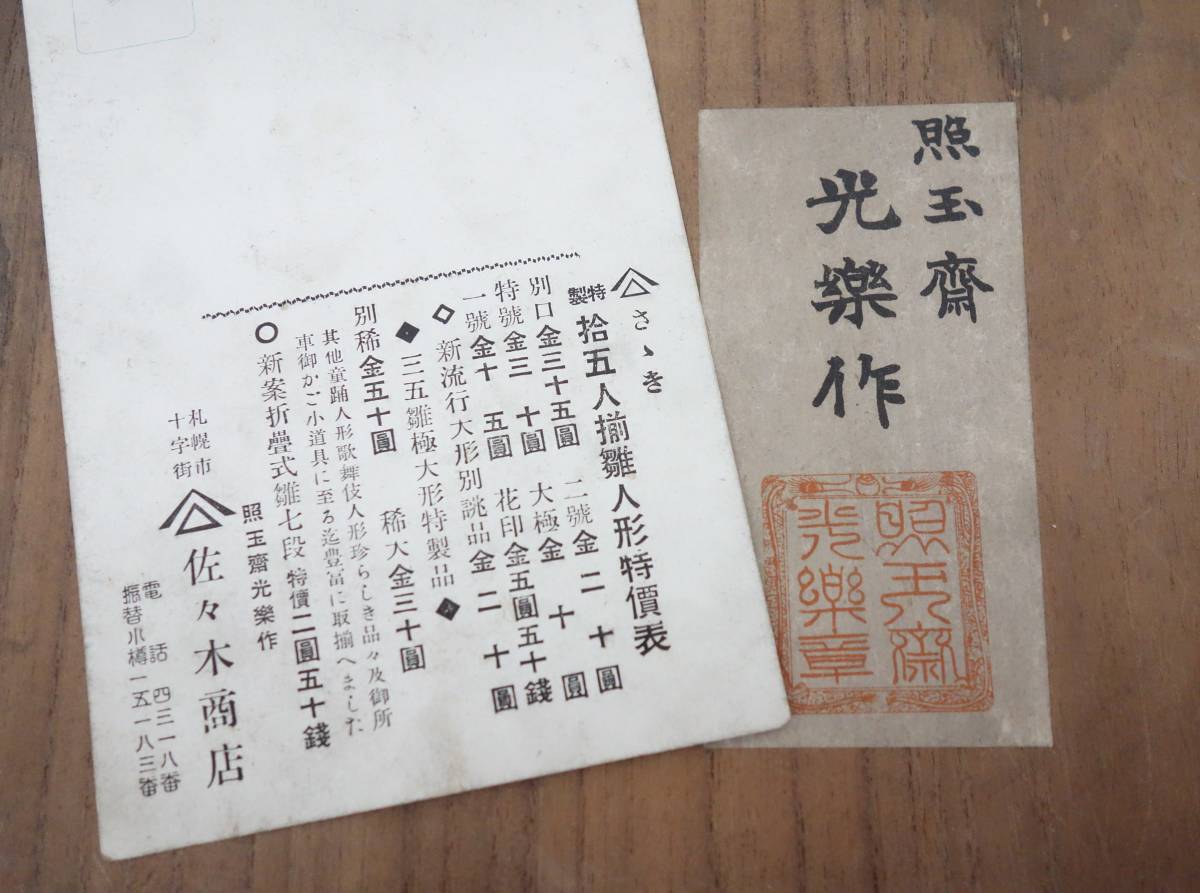 さゝき
特製 拾五人揃雛人形特價表
別口金三十五圓 二號金二十圓
特號金三十圓 大極金十圓
一號金十五圓 花印金五圓五十錢
◇新流行大形別誂品金二十圓
◆三五雛極大形特製品◆
別稀金五十圓 稀大金三十圓
其他童踊人形歌舞伎人形珍らしき品々及御所
車御かご小道具に至る迄豊富に取揃へました
○新案折疊式雛七段 特價二圓五十錢
照玉齋光樂作
札幌市
十字街
佐々木商店
電話四三一八番
振替小樽一五一八三番
照玉齋
光樂作
照玉齋
光樂章